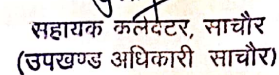 सहायक कलेक्टर, साचौर
(उपखण्ड अधिकारी साचौर)